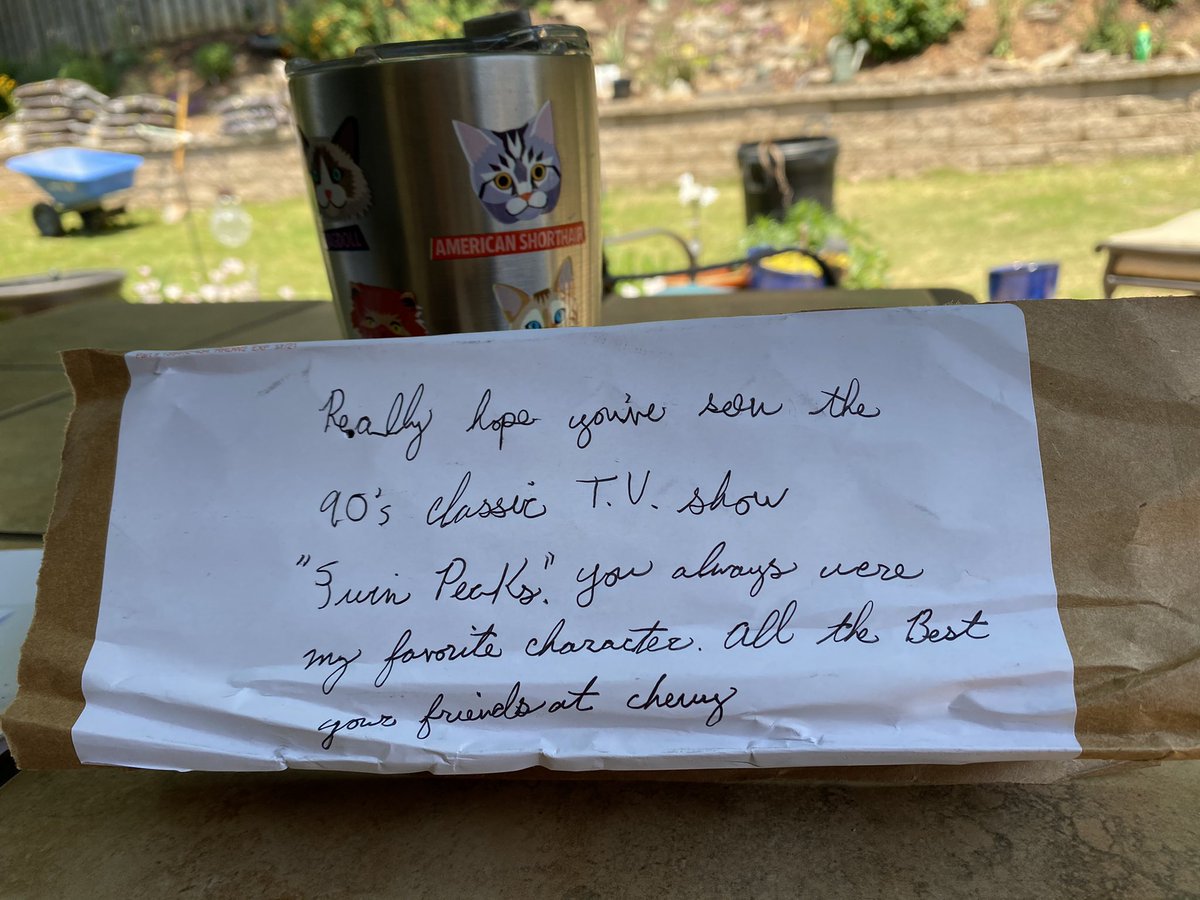 AMERICAN SHORTHAIR
Really hope you've seen the
90's classic T.V. show
"Twin Peaks." you always were
my favorite character. all the Best
your friends at chewy